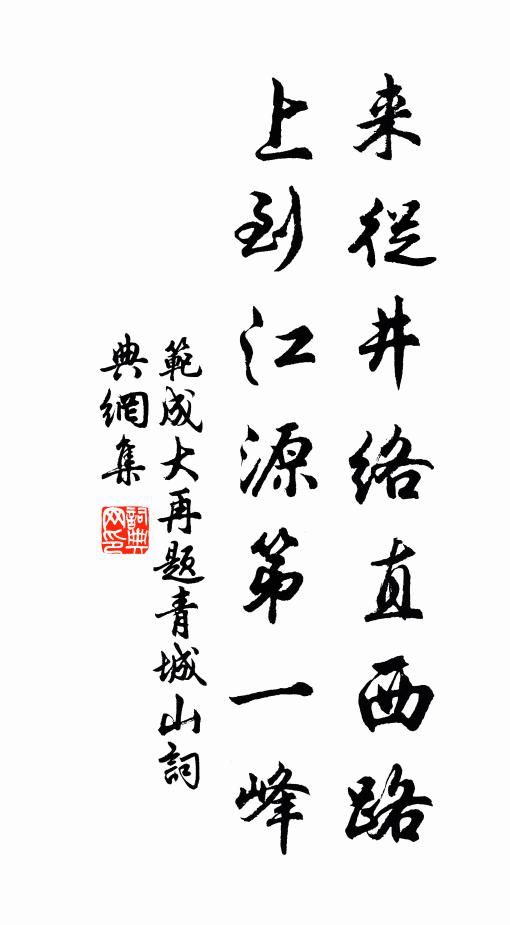 来從井络直西路
上到江源第一峰
範成大再题青城山詞
典網集
詞典网印